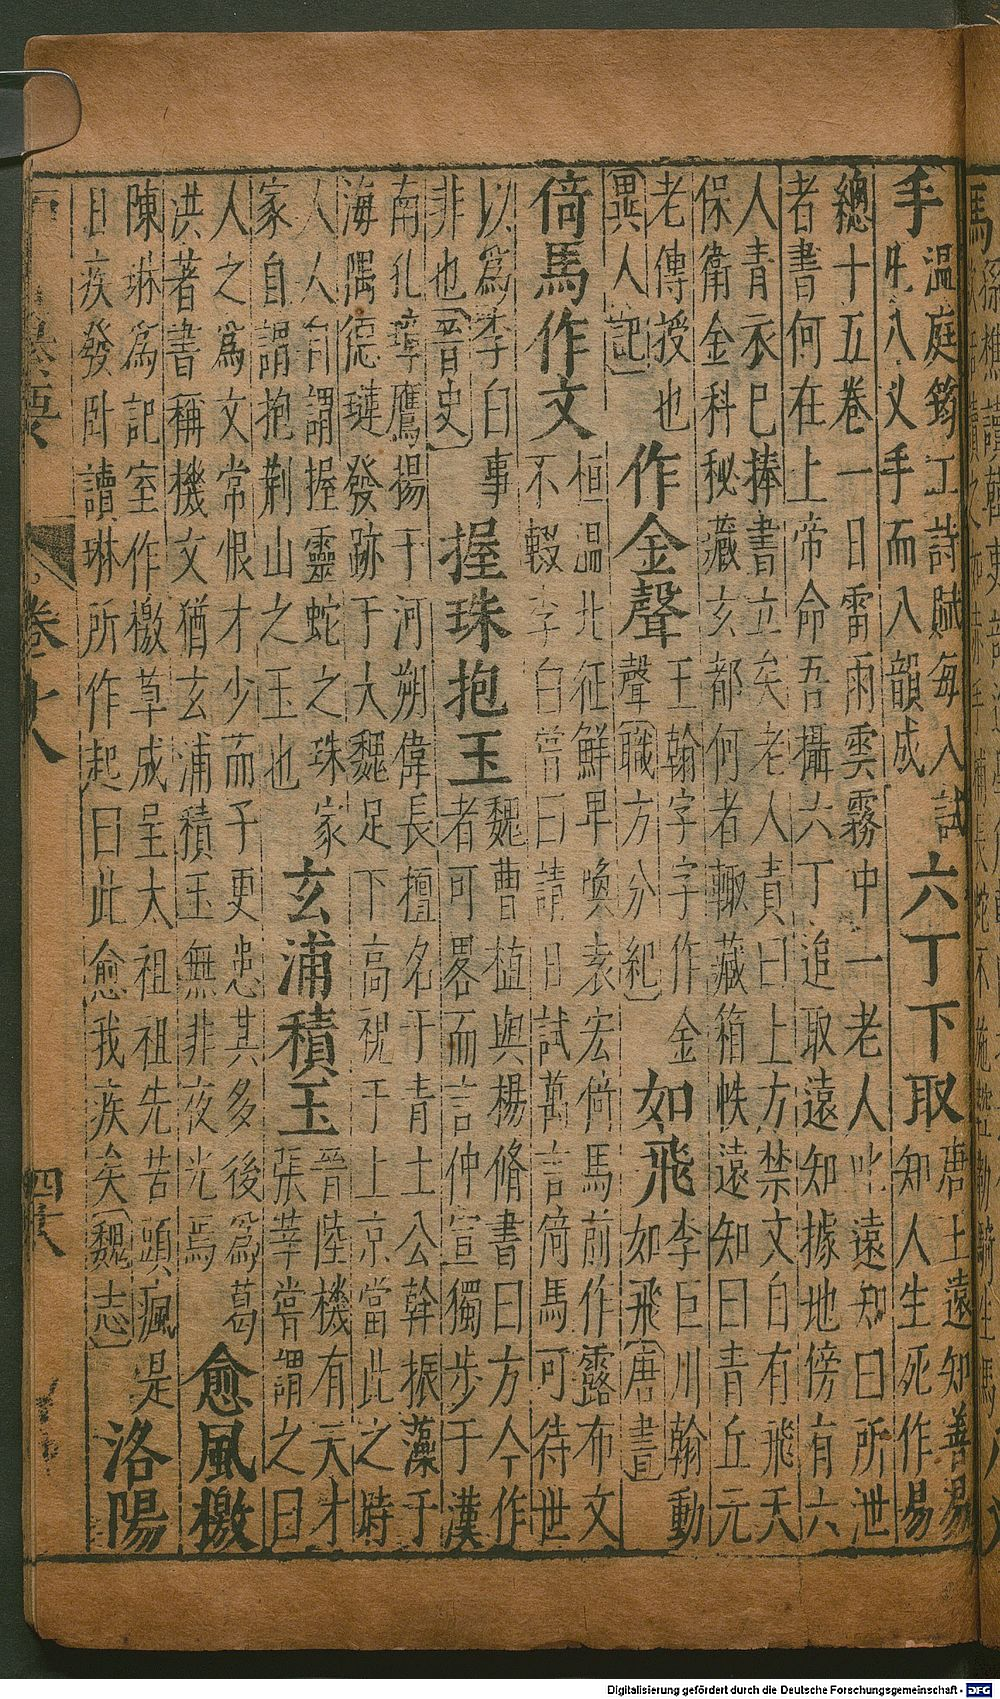 手
温庭筠工詩賦每入試
凡八乂手而八韻成
六丁下取
唐王遠知善易
知人生死作易
總十五卷一日雷雨雲霧中一老人叱遠知曰所泄
者書何在上帝命吾攝六丁追取遠知據地傍有六
人青衣巳捧書立矣老人責曰上方禁文自有飛天
保衛金科秘藏玄都何者輙藏箱帙遠知曰青丘元
老傳授也
異人記
作金聲
王翰字字作金
聲職方分紀
如飛
李巨川翰動
如飛唐書
倚馬作文
桓温北征鮮卑喚袁宏倚馬前作露布文
不輟李白嘗曰請日試萬言倚馬可待世
以爲李白事
非也晉史
握珠抱玉
魏曹植與楊脩書曰方今作
者可畧而言仲宣獨步于漢
南孔璋鷹揚于河朔偉長擅名于青土公幹振藻于
海隅德璉發跡于大魏足下高視于上京當此之時
人人自謂握靈蛇之珠家
家自謂抱荆山之玉也
玄浦積玉
晉陸機有天才
張華嘗謂之曰
人之爲文常恨才少而子更患其多後爲葛
洪著書稱機文猶玄浦積玉無非夜光焉
愈風檄
陳琳爲記室作檄草成呈太祖祖先苦頭瘋是
日疾發卧讀琳所作起曰此愈我疾矣魏志
洛陽
卷十八
Digitalisierung gefördert durch die Deutsche Forschungsgemeinschaft - DFG